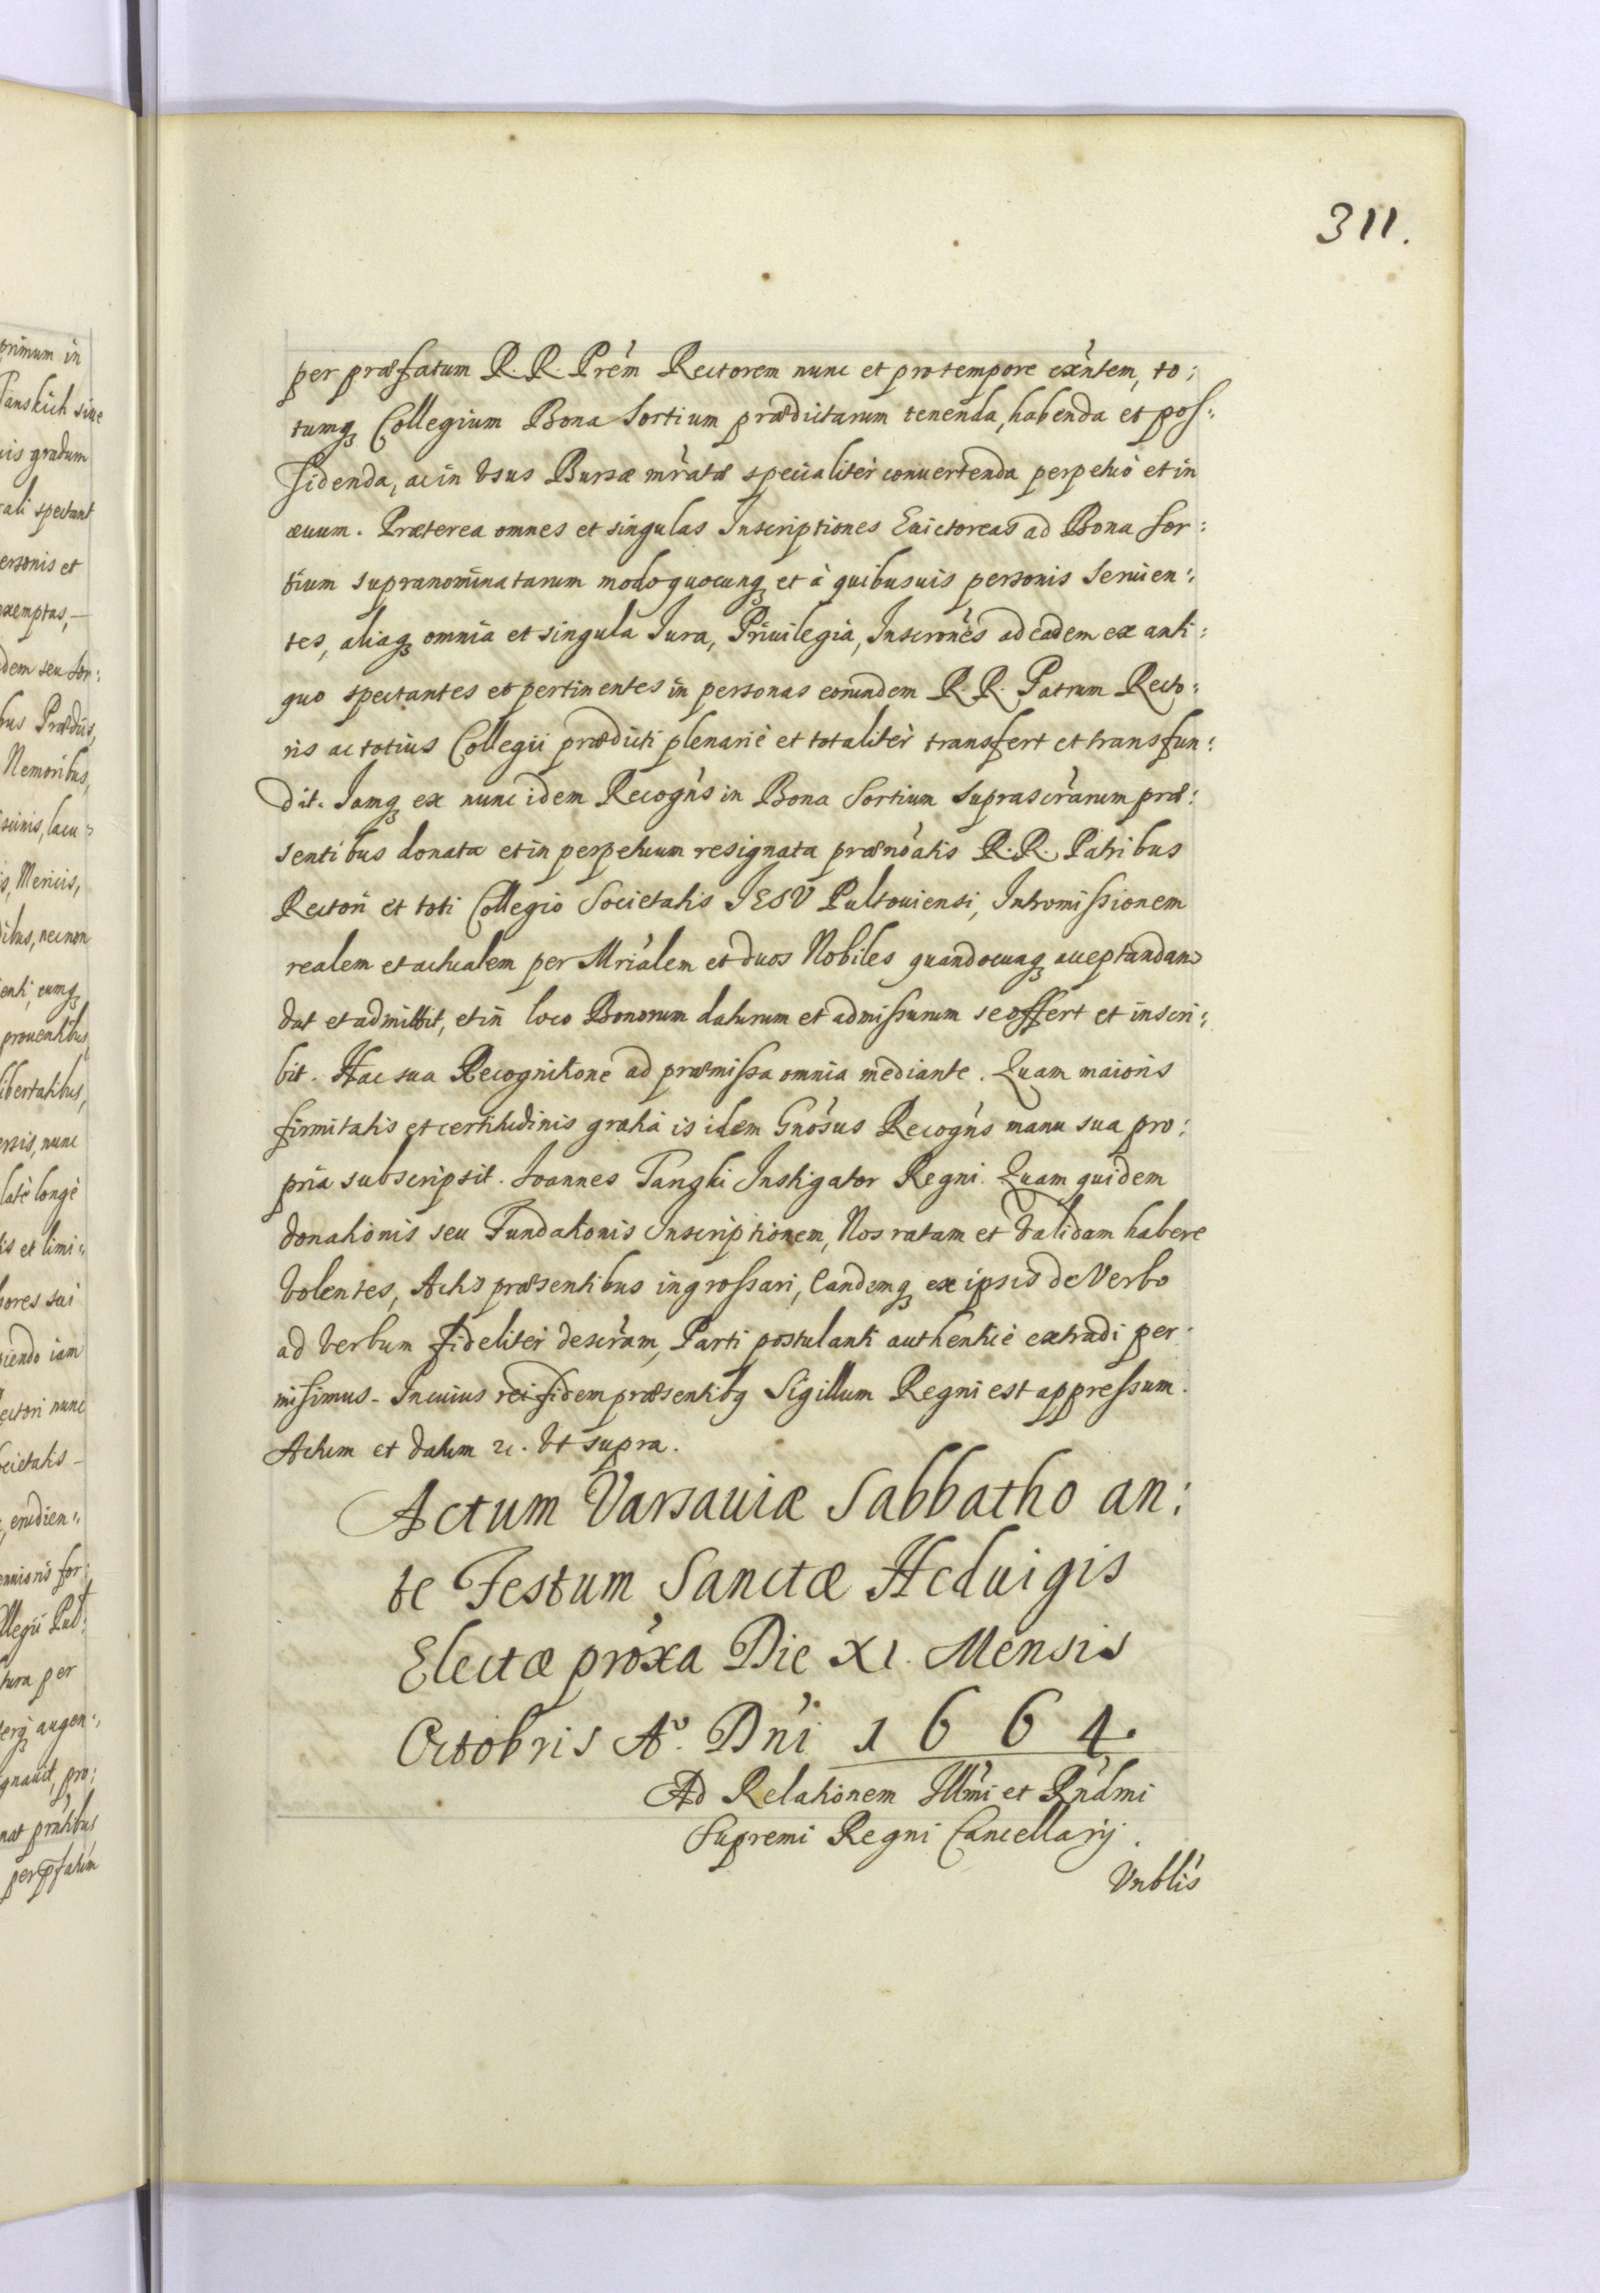 311.
per præfatum R. R. Prèm Rectorem nunc et pro tempore exñtem, to:
tumq3 Collegium Bona Sortium prædictarum tenenda, habenda et pos:
sidenda, ac in Vsus Bursæ mràtæ specialitèr conuertenda perpetuò et in
æuum. Præterea omnes et singulas Inscriptiones Euictoreas ad Bona Sor:
tium supranominatarum modo quocunq3 et à quibusuis personis Seruien:
tes, aliaq3 omnia et singula Iura, Priuilegia, Inscrònes ad eadem ex anti:
quo spectantes et pertinentes in personas eorundem R. R. Patrum Recto:
ris ac totius Collegii prædicti plenariè et totalitèr transfert et transfun:
dit. Iamq3 ex nunc idem Recogǹs in Bona Sortium suprascràrum præ:
sentibus donata et in perpetuum resignata prænoàtis R. R. Patribus
Rectori et toti Collegio Societatis IESV Pultouiensi, Intromissionem
realem et actualem per Mriàlem et duos Nobiles quandocunq3 acceptandam
dat et admittit, et in loco Bonorum daturum et admissurum se offert et inscri:
bit. Hac sua Recognitione ad præmissa omnia mediante. Quam maioris
firmitatis et certitudinis gratia is idem Gnòsus Recogǹs manu sua pro:
pria subscripsit. Ioannes Tanski Instigator Regni. Quam quidem
donationis seu Fundationis Inscriptionem, Nos ratam et validam habere
volentes, Actis præsentibus ingrossari, Eandemq3 ex ipsis de Verbo
ad verbum fidelitèr descràm, Parti postulanti authenticè extradi per:
misimus. In cuius rei fidem præsentibg Sigillum Regni est appressum.
Actum et datum &c. Vt supra.
Actum Varsauiæ Sabbatho an:
te Festum Sanctæ Heduigis
Electæ pròxa Die XI. Mensis
Octobris A°. Dǹi 1664.
Ad Relationem Illm̀i et Rǹdmi
Supremi Regni Cancellarij.
Vnblìs
primum in
Tanskich siue
uis gradum
cali spectant
ersonis et
exemptas,
dem seu Sor:
bus Prædiis,
Nemoribus,
scinis, lacu
s, Mericis,
ilus, nec non
enti, cumq3
prouentibus
libertatibus,
ersis, nunc
latè longè
is et limi:
bores sui
piendo iam
ectori nunc
ocietatis
, erudien:
ennioris for:
llegii Pul:
tura per
terq3 augen:
ignauit, pro:
nat pràtibus
per pfatum